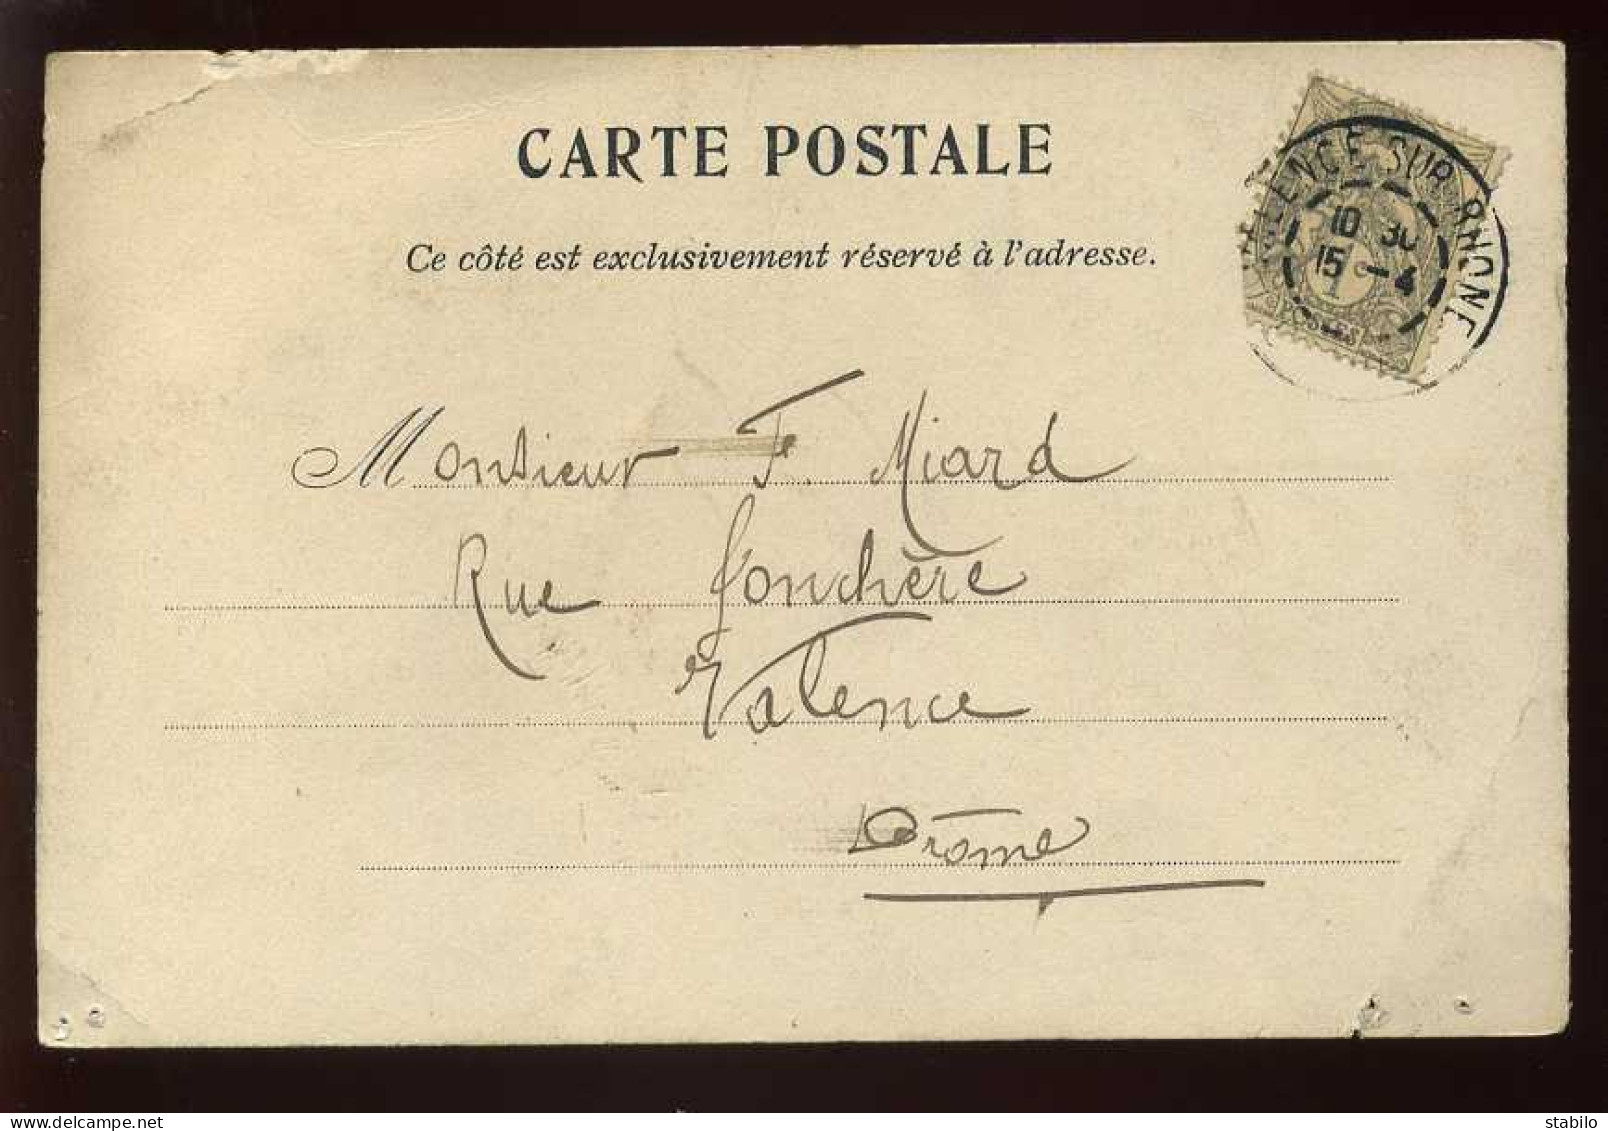 CARTE POSTALE
Ce côté est exclusivement réservé à l'adresse.
VALENCE SUR RHONE
10 30
15 -4
POSTES
Monsieur F. Miard
Rue Jonchère
Valence
Drôme
www.delcampe.net
stabilo